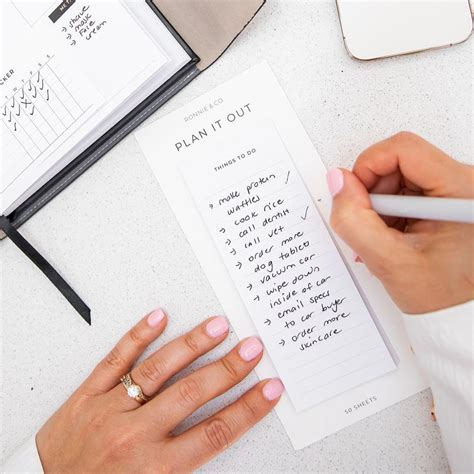 → shave
→ mask
→ face
cream
RONNIE & CO
PLAN IT OUT
THINGS TO DO
→ make protein
waffles
→ cook rice
→ call dentist
→ call vet
→ order more
dog tablets
→ vacuum car
→ wipe down
inside of car
→ email specs
to car buyer
→ order more
skincare
50 SHEETS